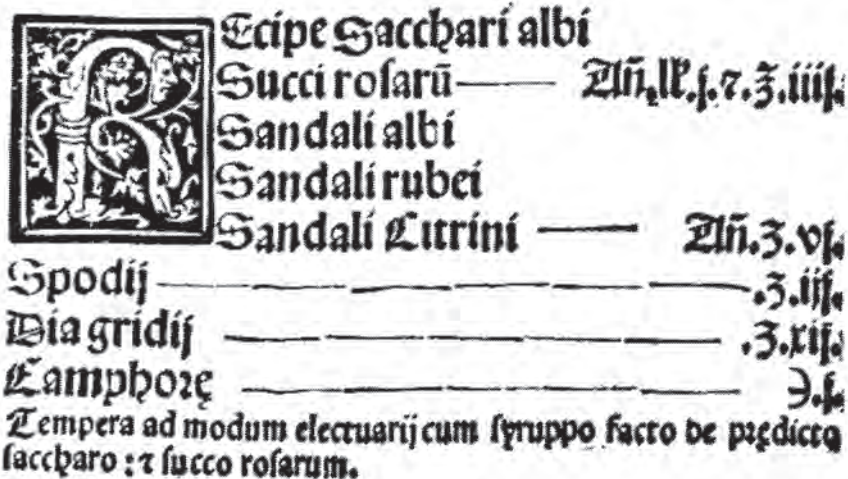 REcipe Sacchari albi
Succi roſarū — Añ.lb.j.⁊.℥.iiij.
Sandali albi
Sandali rubei
Sandali Citrini — Añ.ʒ.vj.
Spodij — .ʒ.iij.
Diagridij — .ʒ.xij.
Camphorę — ℈.j.
Tempera ad modum electuarij cum ſyruppo facto de prędicto
ſaccharo : ⁊ ſucco roſarum.